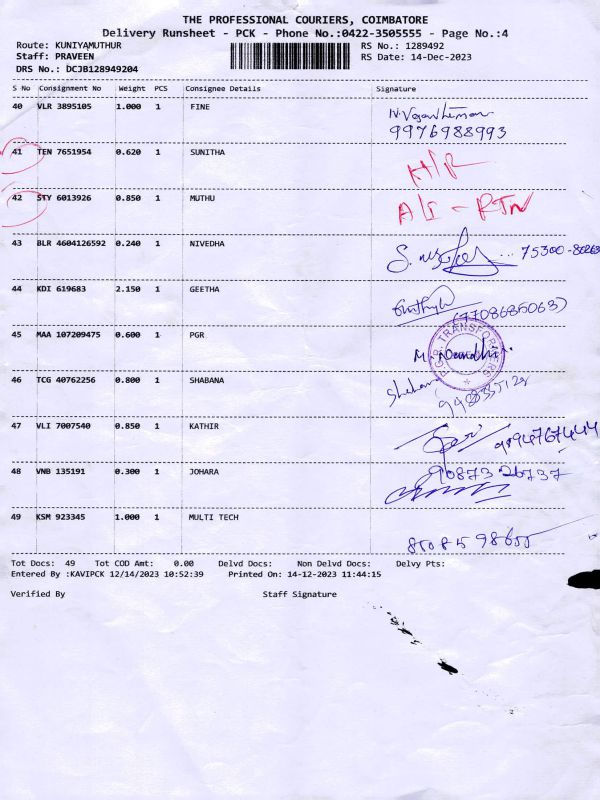 THE PROFESSIONAL COURIERS, COIMBATORE
Delivery Runsheet - PCK - Phone No.:0422-3505555 - Page No.:4
Route: KUNIYAMUTHUR RS No.: 1289492
Staff: PRAVEEN RS Date: 14-Dec-2023
DRS No.: DCJB128949204
S No Consignment No Weight PCS Consignee Details Signature
40 VLR 3895105 1.000 1 FINE
9976988993
41 TEN 7651954 0.620 1 SUNITHA H/R
42 STY 6013926 0.850 1 MUTHU A/I - RTN
43 BLR 4604126592 0.240 1 NIVEDHA
44 KDI 619683 2.150 1 GEETHA
(7708685063)
45 MAA 107209475 0.600 1 PGR
P.G.R. TRANSFORMERS
46 TCG 40762256 0.800 1 SHABANA
47 VLI 7007540 0.850 1 KATHIR
48 VNB 135191 0.300 1 JOHARA
49 KSM 923345 1.000 1 MULTI TECH
Tot Docs: 49 Tot COD Amt: 0.00 Delvd Docs: Non Delvd Docs: Delvy Pts:
Entered By :KAVIPCK 12/14/2023 10:52:39 Printed On: 14-12-2023 11:44:15
Verified By Staff Signature